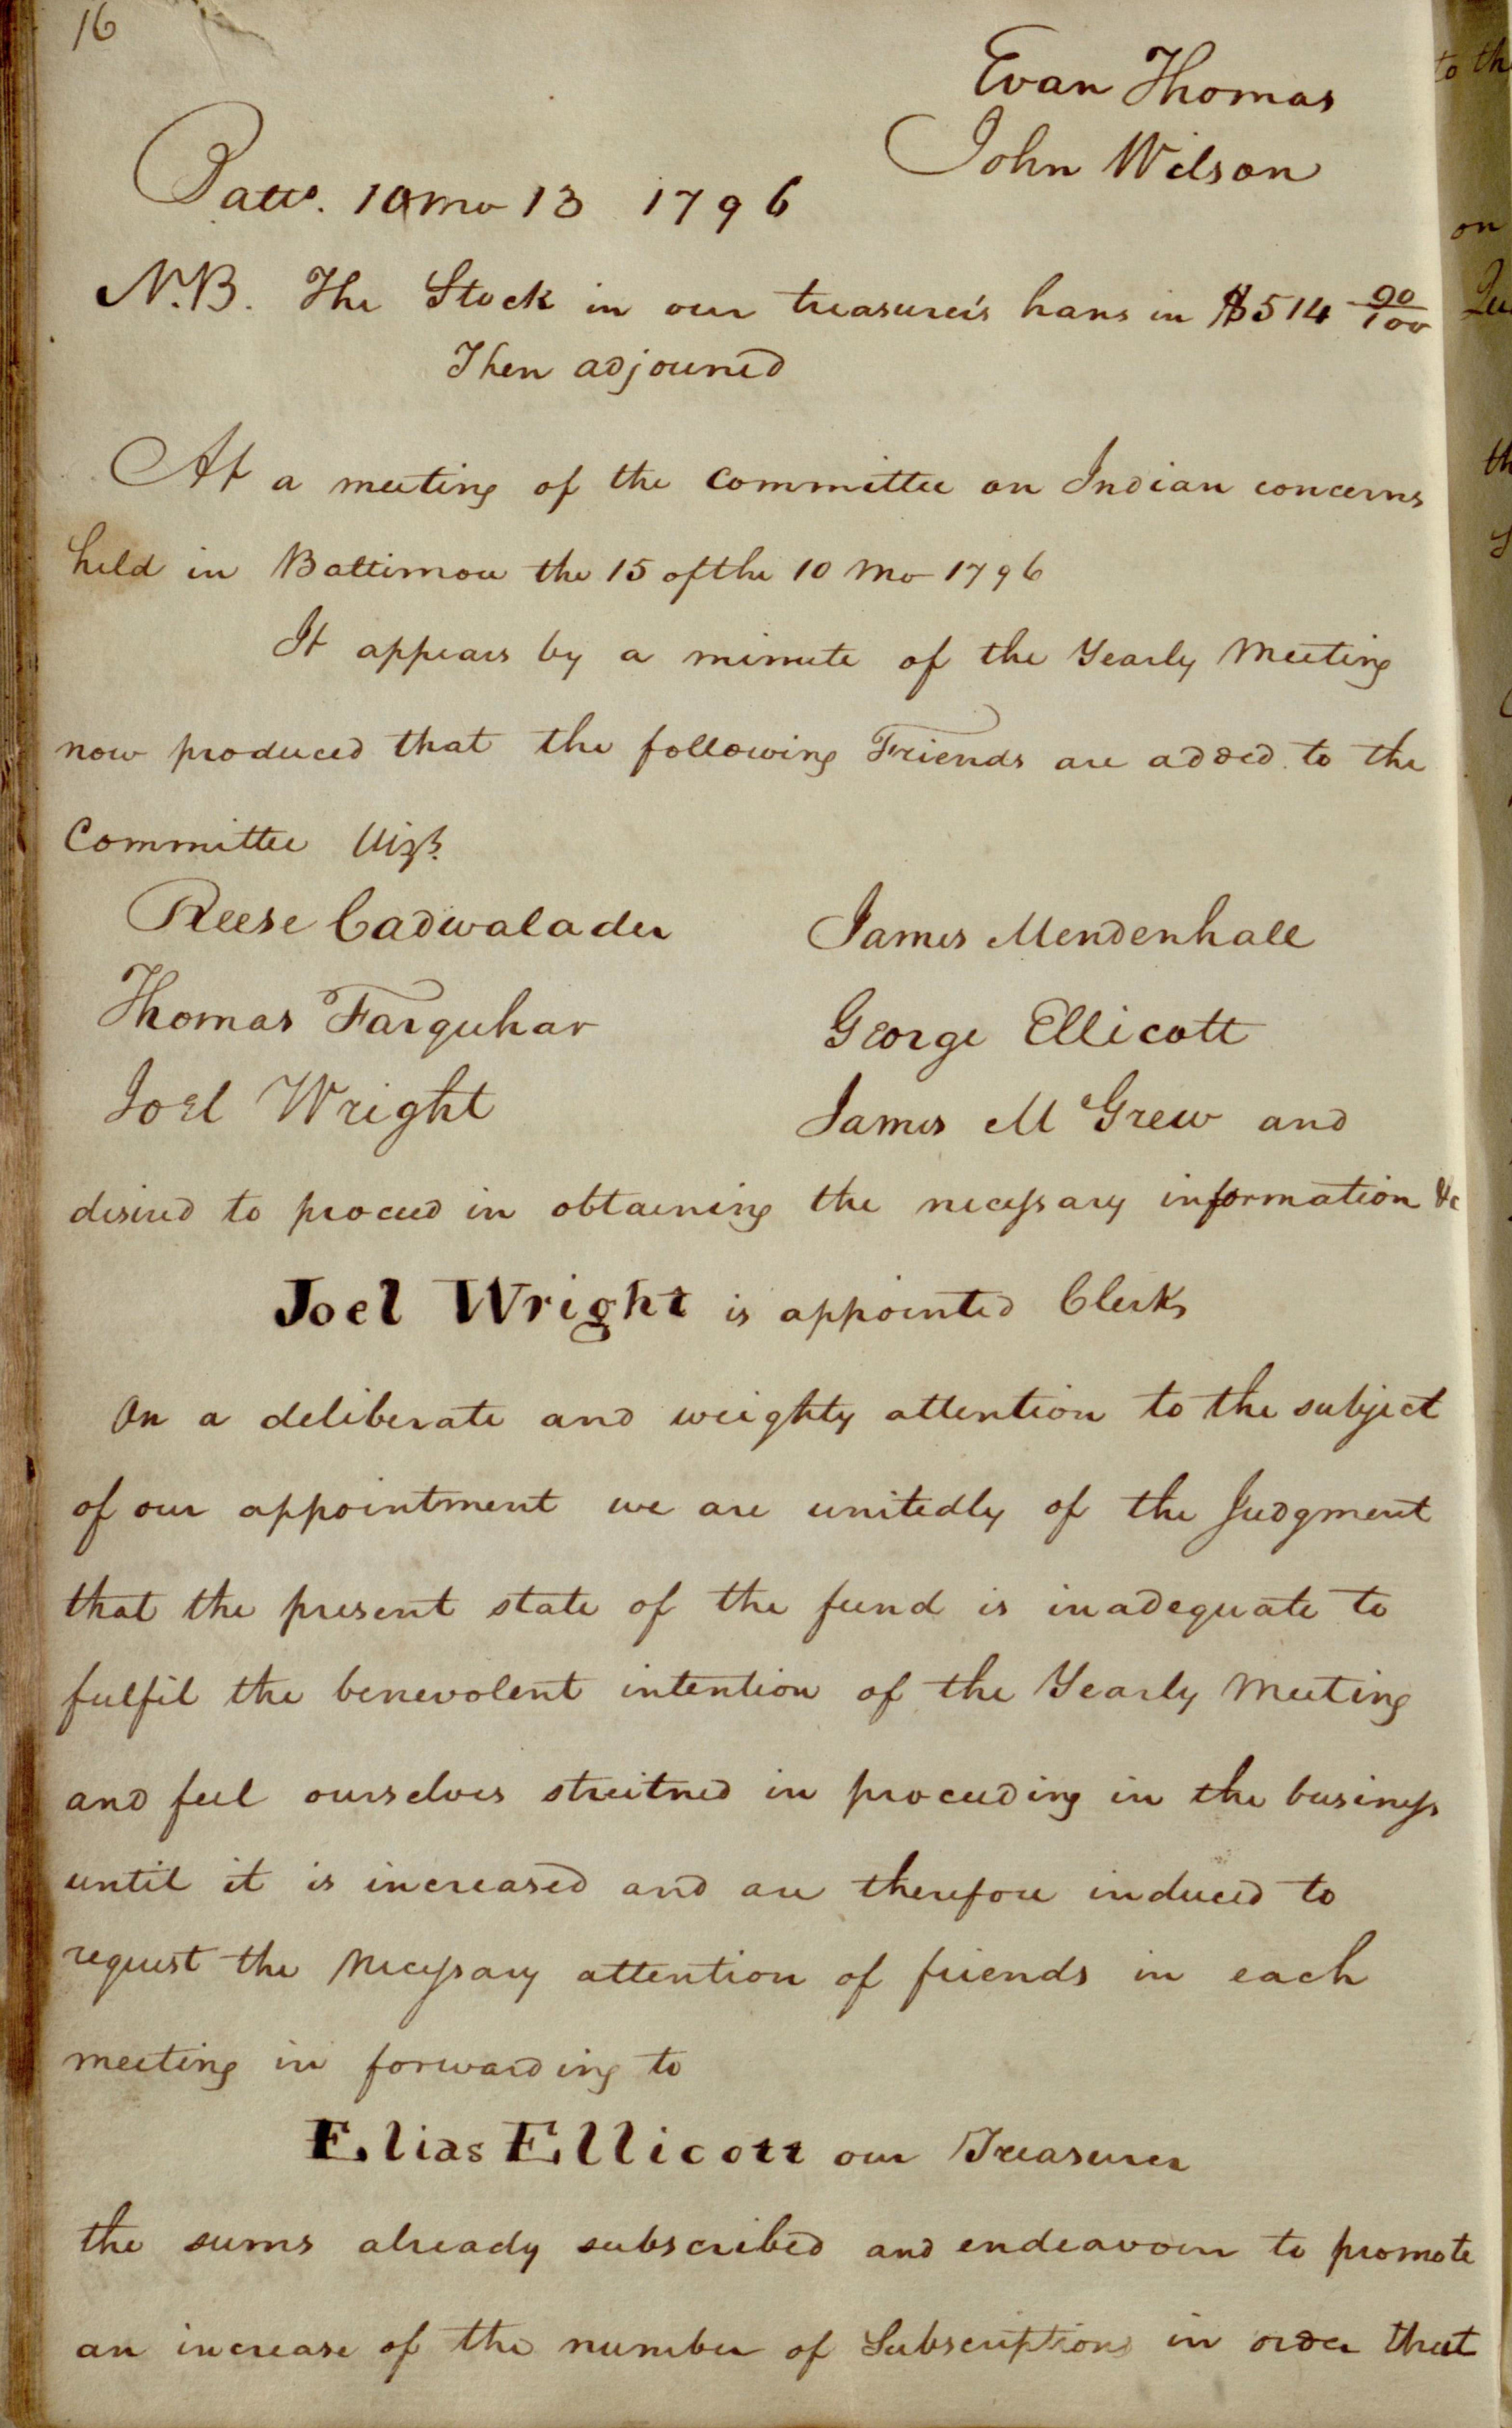 16
Evan Thomas
John Wilson
Balto. 10 mo 13 1796
N.B. The Stock in our treasurer's hans in $514 90/100
Then adjourned
At a meeting of the Committee on Indian concerns
held in Baltimore the 15 of the 10 Mo 1796
It appears by a minute of the Yearly Meeting
now produced that the following Friends are added to the
Committee Vizt.
Reese Cadwalader James Mendenhall
Thomas Farquhar George Ellicott
Joel Wright James M Grew and
desired to proceed in obtaining the necessary information &c
Joel Wright is appointed Clerk
On a deliberate and weighty attention to the subject
of our appointment we are unitedly of the Judgment
that the present state of the fund is inadequate to
fulfil the benevolent intention of the Yearly Meeting
and feel ourselves streitned in proceeding in the business
until it is increased and are therefore induced to
request the Necessary attention of friends in each
meeting in forwarding to
Elias Ellicott our Treasurer
the sums already subscribed and endeavour to promote
an increase of the number of Subscriptions in order that